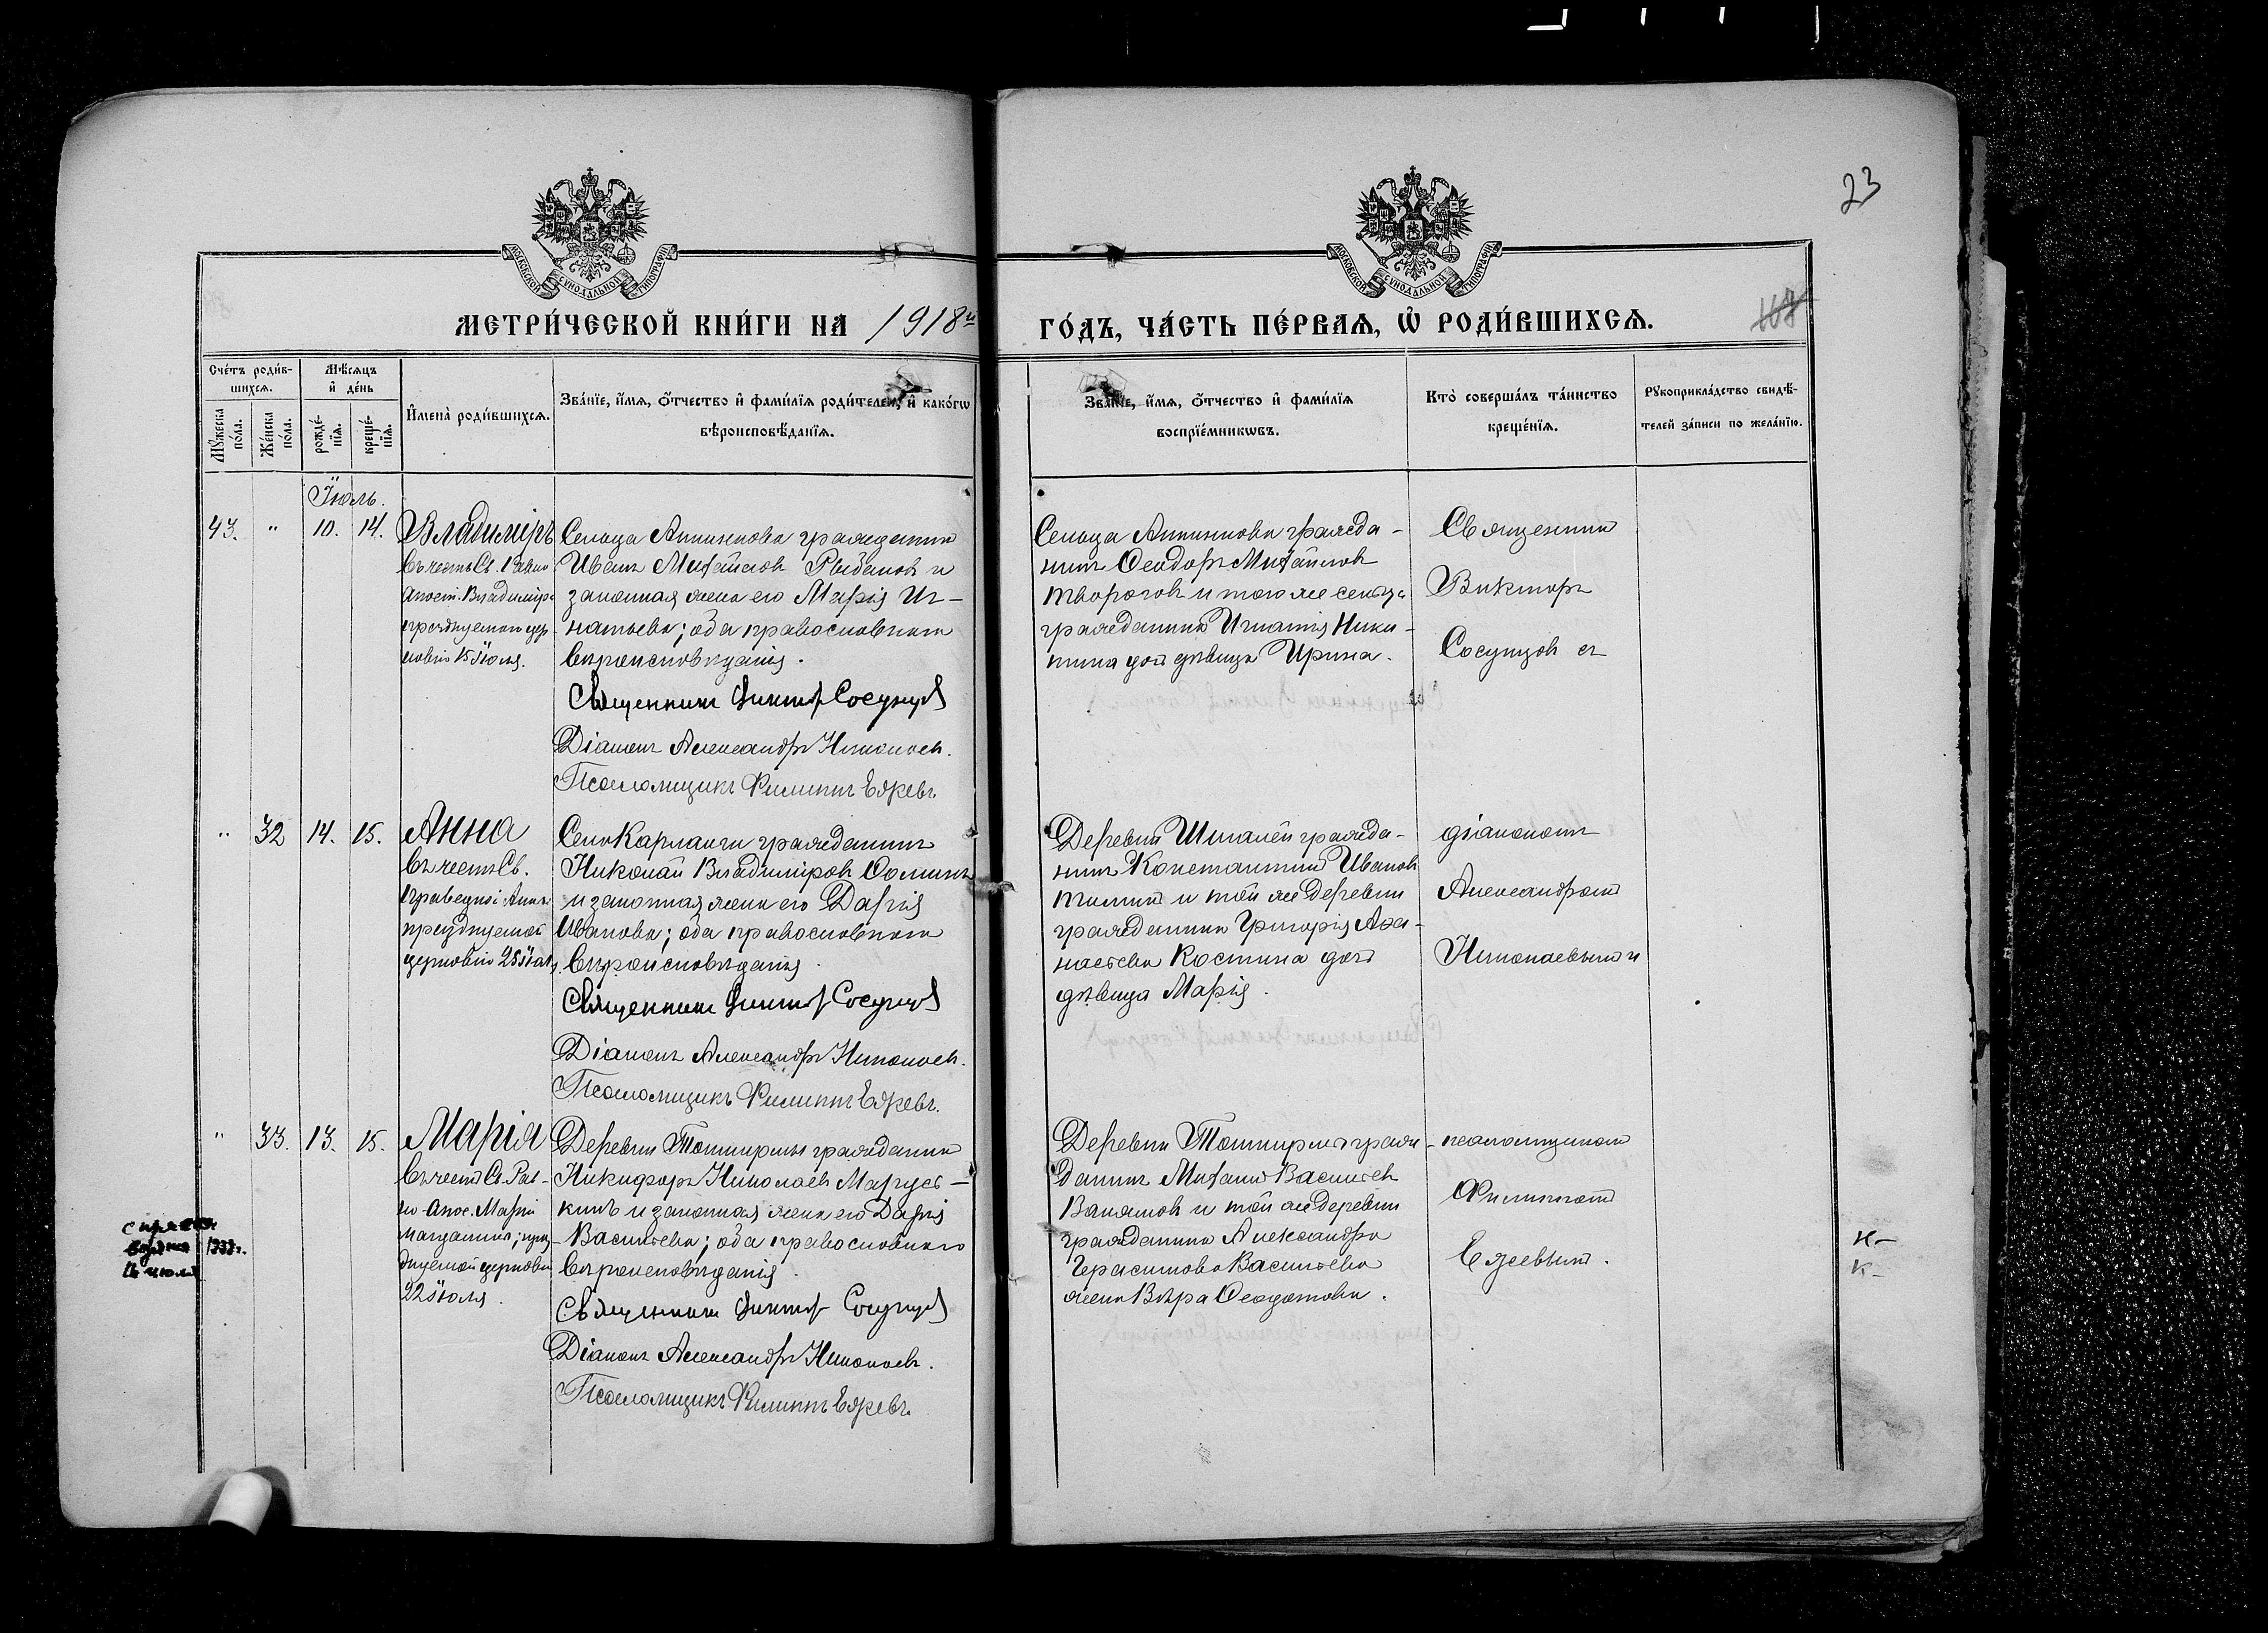 23
МОСКОВСКОЙ СѴНОДАЛЬНОЙ ТИПОГРАФІИ
МОСКОВСКОЙ СѴНОДАЛЬНОЙ ТИПОГРАФІИ
МЕТРИ́ЧЕСКОЙ КНИ́ГИ НА 1918й
ГО́ДЪ, ЧА́СТЬ ПЕ́РВАѦ, Ѡ҆ РОДИ́ВШИХСѦ.
Сче́тъ роди́в-
шихсѧ.
Мѣ́сѧцъ
и҆ де́нь
Мꙋ́жеска
по́ла.
Же́нска
по́ла.
рожде́-
нїѧ.
креще́-
нїѧ.
И҆мена̀ роди́вшихсѧ.
Зва́нїе, и҆́мѧ, ѻ҆́тчество и҆ фами́лїѧ роди́телей, и҆ како́гѡ
вѣроисповѣ́данїѧ.
Зва́нїе, и҆́мѧ, ѻ҆́тчество и҆ фами́лїѧ
воспрїе́мникѡвъ.
Кто̀ соверша́лъ та́инство
креще́нїѧ.
Рꙋкоприкла́дство свидѣ́-
телей за́писи по жела́нїю.
Іюль.
43. " 10. 14. Владиміръ
въ честь Св. Равно
апост. Владиміра
празднуемаго цер
ковію 15 іюля.
Сельца гражданинъ
Иванъ Михайловъ Рыбаковъ и
законная жена его Марія Иг-
натьева; оба православнаго
вѣроисповѣданія.
Священникъ Викторъ Сосунцовъ
Діаконъ Александръ Николаевъ.
Псаломщикъ Филиппъ
Сельца гражда-
нинъ Ѳеодоръ Михайловъ
Творогов и того же сельца
гражданина Игнатія Ники-
тина дочь дѣвица Ирина.
Священник
Викторъ
Сосунцов съ
" 32 14. 15. Анна
Въ честь Св.
праведной Анны
празднуемой
церковію 25 іюля
Село гражданинъ
Николай Владиміров Ѳоминъ
и законная жена его Дарія
Иванова; оба православнаго
вѣроисповѣданія.
Священникъ Викторъ Сосунцовъ
Діаконъ Александръ Николаевъ.
Псаломщикъ Филиппъ
Деревни гражда-
нинъ Константинъ Иванов
и той же деревни
гражданина Григорія Аѳа-
насьева Костина дочь
дѣвица Марія.
діакономъ
Александромъ
Николаевымъ и
" 33. 13. 15. Марія
въ честь Св. Рав-
но-апос. Маріи
Магдалины; праз-
днуемой церковію
22 іюля.
1933г.
Деревни гражданинъ
Никифоръ Николаевъ
и законная жена его Дарія
Васильева; оба православнаго
вѣроисповѣданія.
Священникъ Викторъ Сосунцовъ
Діаконъ Александръ Николаевъ.
Псаломщикъ Филиппъ
Деревни граж-
данинъ Михаилъ Васильевъ
и той же деревни
гражданина Александра
Герасимова Васильева
жена Вѣра Ѳеодотова.
псаломщикомъ
Филиппомъ